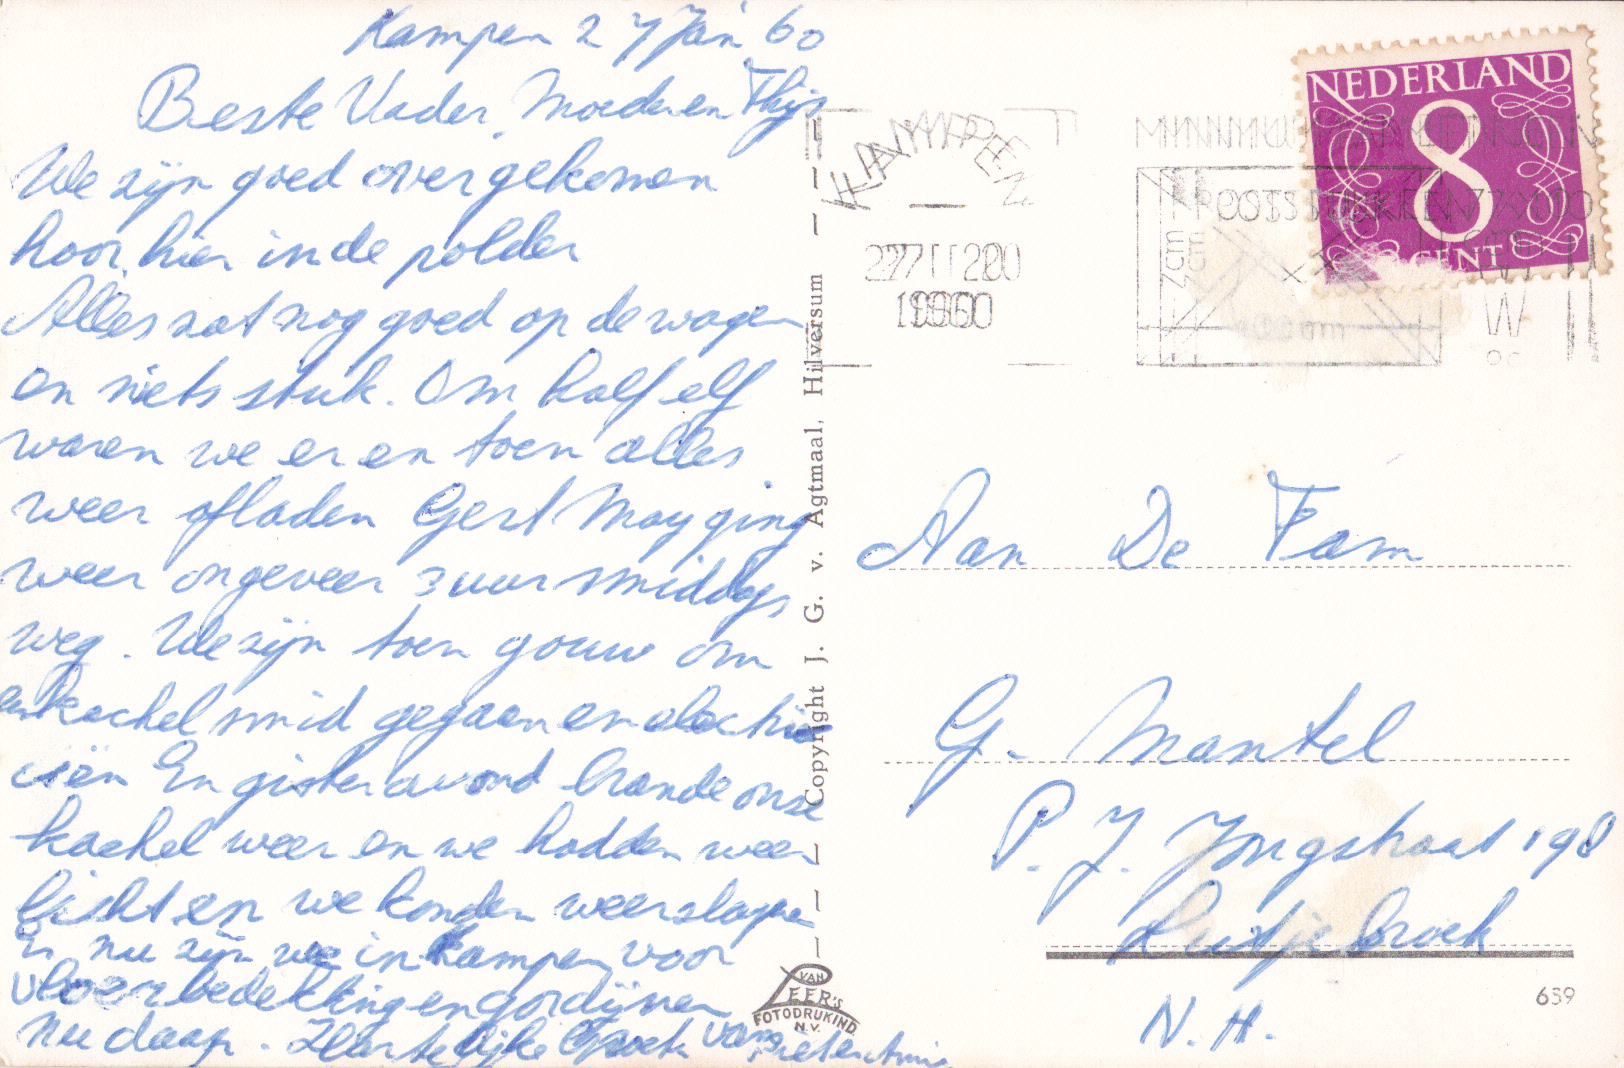 Kampen 27 Jan 60
Beste Vader, Moeder en Thijs
We zijn goed overgekomen
hoor, hier in de polder
Alles zat nog goed op de wagen
en niets stuk. Om half elf
waren we er en toen alles
weer afladen Gert May ging
weer ongeveer 3 uur smiddags
weg. We zijn toen gouw om
en kachel smid gegaan en electri
ciën En gisteravond brande onze
kachel weer en we hadden weer
licht en we konden weer slapen
En nu zijn we in Kampen voor
vloerbedekking en gordijnen
Nu daag. Hartelijke Groet van Pieter en
Copyright J. G. v. Agtmaal, Hilversum
VAN LEER's
FOTODRUKIND.
N.V.
NEDERLAND
8
CENT
KAMPEN
1960
POSTSTUKKEN
Aan De Fam
G. Mantel
P. J. Jongstraat 198
Lutjebroek
N. H.
659